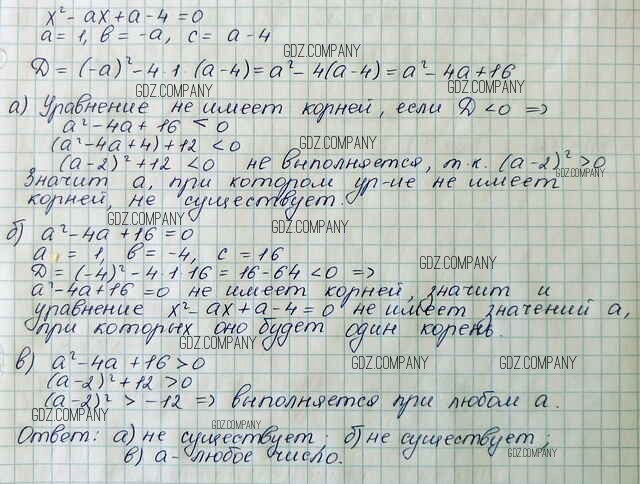 x² - ax + a - 4 = 0
a = 1, в = -a, c = a - 4
GDZ.COMPANY
Д = (-a)² - 4·1·(a-4) = a² - 4(a-4) = a² - 4a + 16
GDZ.COMPANY GDZ.COMPANY
а) Уравнение не имеет корней, если Д < 0 =>
a² - 4a + 16 < 0
(a² - 4a + 4) + 12 < 0 GDZ.COMPANY
(a-2)² + 12 < 0 не выполняется, т.к. (a-2)² > 0
GDZ.COMPANY
Значит a, при котором ур-ие не имеет
корней, не существует.
GDZ.COMPANY GDZ.COMPANY
б) a² - 4a + 16 = 0
a = 1, в = -4, c = 16
GDZ.COMPANY
Д = (-4)² - 4·1·16 = 16 - 64 < 0 =>
a² - 4a + 16 = 0 не имеет корней, значит и
GDZ.COMPANY
уравнение x² - ax + a - 4 = 0 не имеет значений a,
при которых оно будет один корень.
GDZ.COMPANY
в) a² - 4a + 16 > 0 GDZ.COMPANY GDZ.COMPANY
(a-2)² + 12 > 0
(a-2)² > -12 => выполняется при любом a.
GDZ.COMPANY
GDZ.COMPANY
Ответ: а) не существует; б) не существует;
в) a - любое число. GDZ.COMPANY